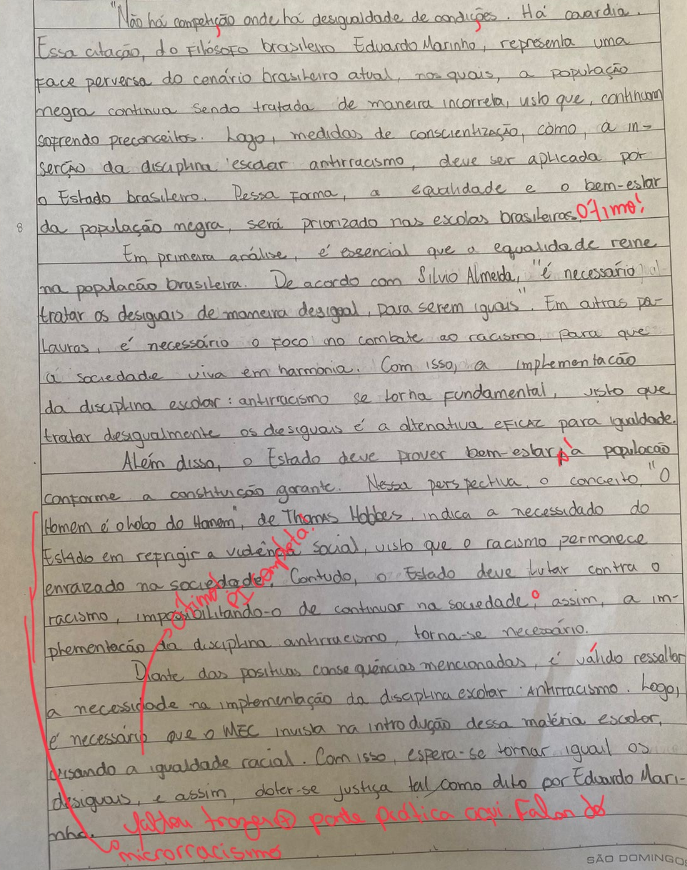 "Não há competição onde há desigualdade de condições. Há covardia.
Essa citação, do Filósofo brasileiro Eduardo Marinho, representa uma
Face perversa do cenário brasileiro atual, nos quais, a população
negra continua sendo tratada de maneira incorreta, visto que, continuam
sofrendo preconceitos. Logo, medidas de conscientização, como, a in-
serção da disciplina escolar antirracismo, deve ser aplicada por
o Estado brasileiro. Dessa Forma, a equalidade e o bem-estar
8 da população negra, será priorizado nas escolas brasileiras. Ótimo!
Em primeira análise, é essencial que a equalidade reine
na população brasileira. De acordo com Silvio Almeida, "é necessário
tratar os desiguais de maneira desigual, para serem iguais". Em outras pa-
lavras, é necessário o Foco no combate ao racismo, para que
a sociedade viva em harmonia. Com isso, a implementacão
da disciplina escolar: antirracismo se torna Fundamental, visto que
tratar desigualmente os desiguais é a alternativa eFicaz para igualdade.
Além disso, o Estado deve prover bem-estar à população
conforme a constituição garante. Nessa perspectiva, o conceito, "O
Homem é o lobo do Homem", de Thomas Hobbes, indica a necessidado do
Estado em refrigir a violência social, visto que o racismo permanece
enraizado na sociedade. Contudo, o Estado deve lutar contra o
racismo, impossibilitando-o de continuar na sociedade, assim, a im-
plementacão da disciplina antirracismo, torna-se necessário.
Ótimo! PI completa.
Diante das positivas consequências mencionadas, é válido ressaltar
a necessidade na implementação da disciplina escolar: Antirracismo. Logo,
é necessário que o MEC invista na introdução dessa matéria escolar,
visando a igualdade racial. Com isso, espera-se tornar igual os
desiguais, e assim, obter-se justiça tal como dito por Eduardo Mari-
nho. Faltou trazer a parte prática aqui. Falar do
microrracismo
SÃO DOMINGO